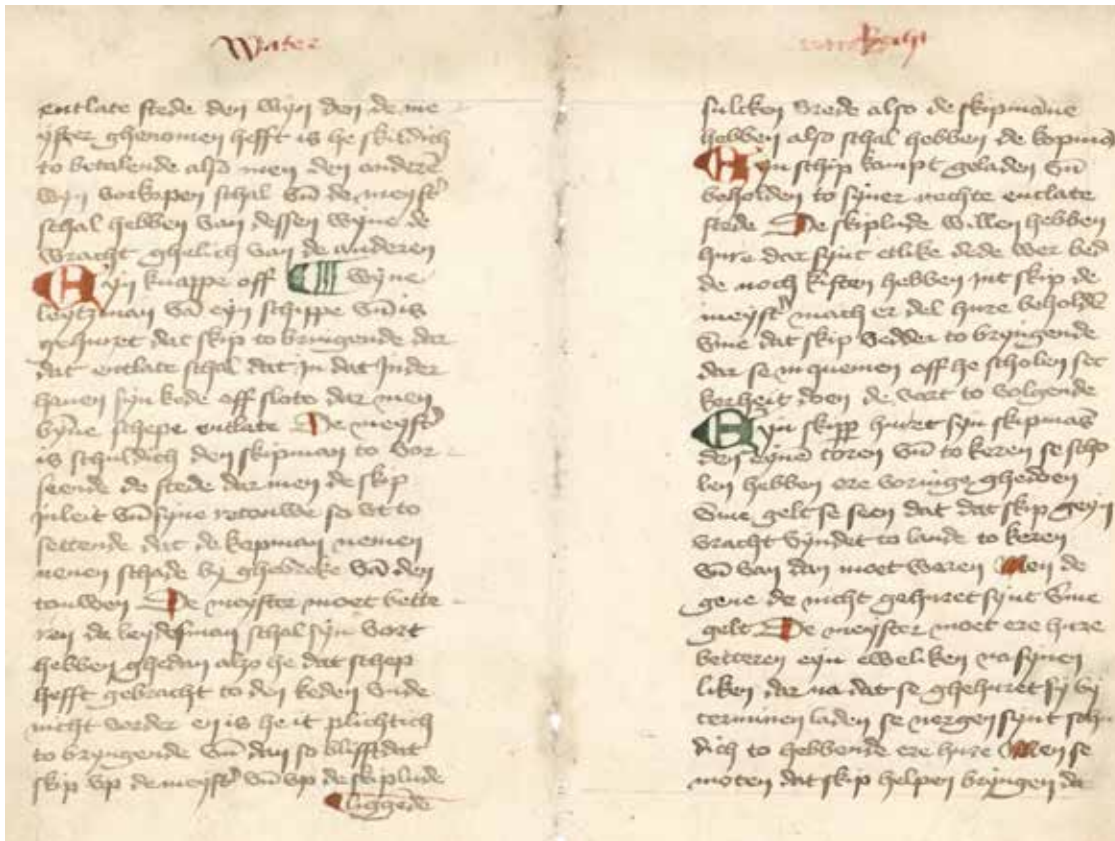 Water
entlate stede den wijn den de me
yster ghenomen hefft is he schildich
to betalende also men den anderen
wijn vorkopen schal vnde de meyster
schal hebben van dessen wyne de
vracht ghelich van de anderen
Eyn knappe off wyne
leytzman van eyn schippe vnde is
gehuret dat skip to bringende dar
dat entlate schal dat in dat Inder
hauen syn kede off sloto dar men
byne schepe entlate De meyster
is schuldich den skipman to vor
seende de stede dar men de skip
inleit vnde syne retouwe so vt to
settende dat de kopman nemen
nenen schade by ghebreke van den
touwen De meyster moet bette
ren de leydesman schal syn vort
hebben ghedan also he dat schep
hefft gebracht to den keden vnde
nicht vorder en is he it plichtich
to bryngende vnde dan so blifft dat
skip vp de meyster vnde vp de skiplude
liggende
recht
sulcken vrede also de skipmanne
hebben also schal hebben de kopman
Eyn schip kompt geladen vnde
beholden to syner rechte entlate
stede De skiplude willen hebben
hure dar synt etlike de de wer bed
de noch kisten hebben int skip de
meyster mach er del hure beholden
vme dat skip wedder to bryngende
dar se in quemen off he scholen sec
kerheit doen de vort to volgende
Eyn skipper huret syn skipman
den eynen toren vnde to keren se scho
len hebben ere voringe ghedoen
vme gelt se seen dat dat skip geyn
vracht vyndet to lande to keren
vnde van dan moet waren Men de
gene de nicht gehuret synt vme
gelt De meyster moet ere hure
betteren eyn eweliken na synen
liken dar na dat se ghehuret sy by
terminen laden se nergen synt schul
dich to hebbende ere hure Men se
moten dat skip helpen bryngen da